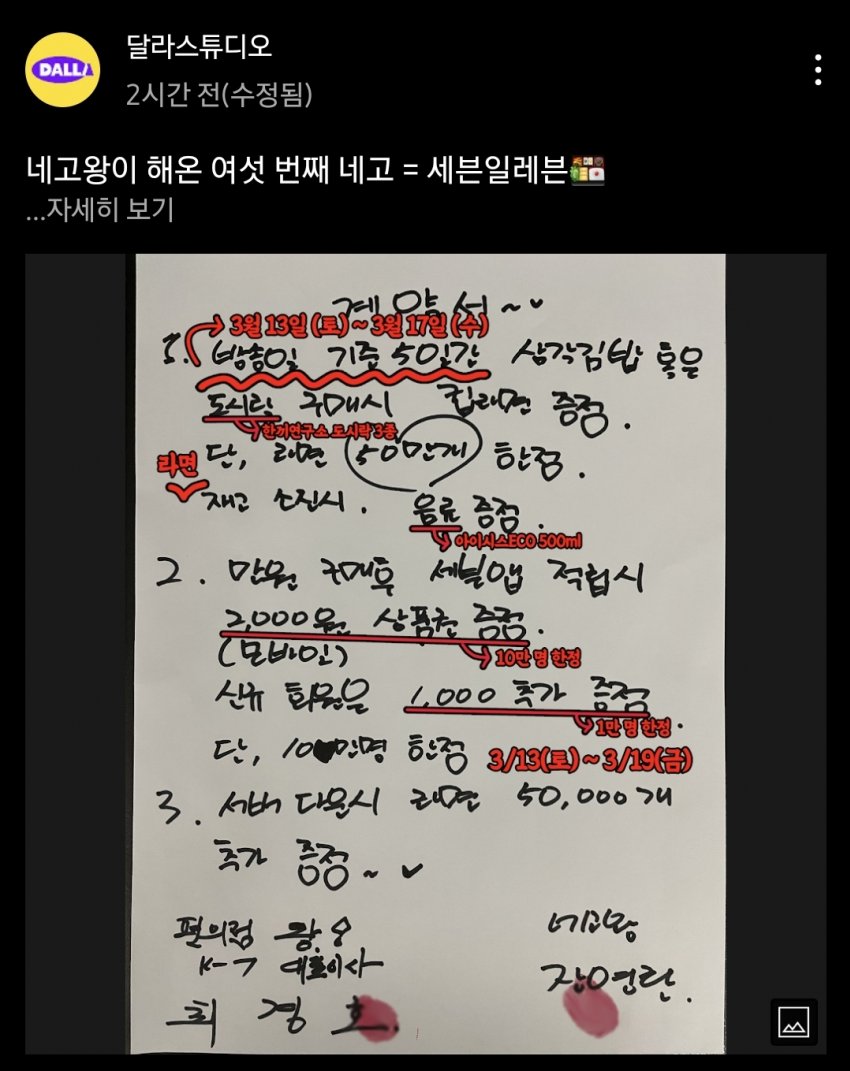 DALLA
달라스튜디오
2시간 전(수정됨)
네고왕이 해온 여섯 번째 네고 = 세븐일레븐
...자세히 보기
계약서~
3월 13일 (토) ~ 3월 17일 (수)
1. 방송일 기준 5일간 삼각김밥 혹은
도시락 구매시 컵라면 증정.
한끼연구소 도시락 3종
단, 라면 50만개 한정.
라면
재고 소진시. 음료 증정.
아이시스ECO 500ml
2. 만원 구매후 세븐앱 적립시
2,000원 상품권 증정.
(모바일)
10만 명 한정
신규 회원은 1,000 추가 증정
1만 명 한정.
단, 10만명 한정
3/13(토) ~ 3/19(금)
3. 서버 다운시 라면 50,000개
추가 증정~
편의점 왕
네고왕
K-7 대표이사
장영란.
최경호.